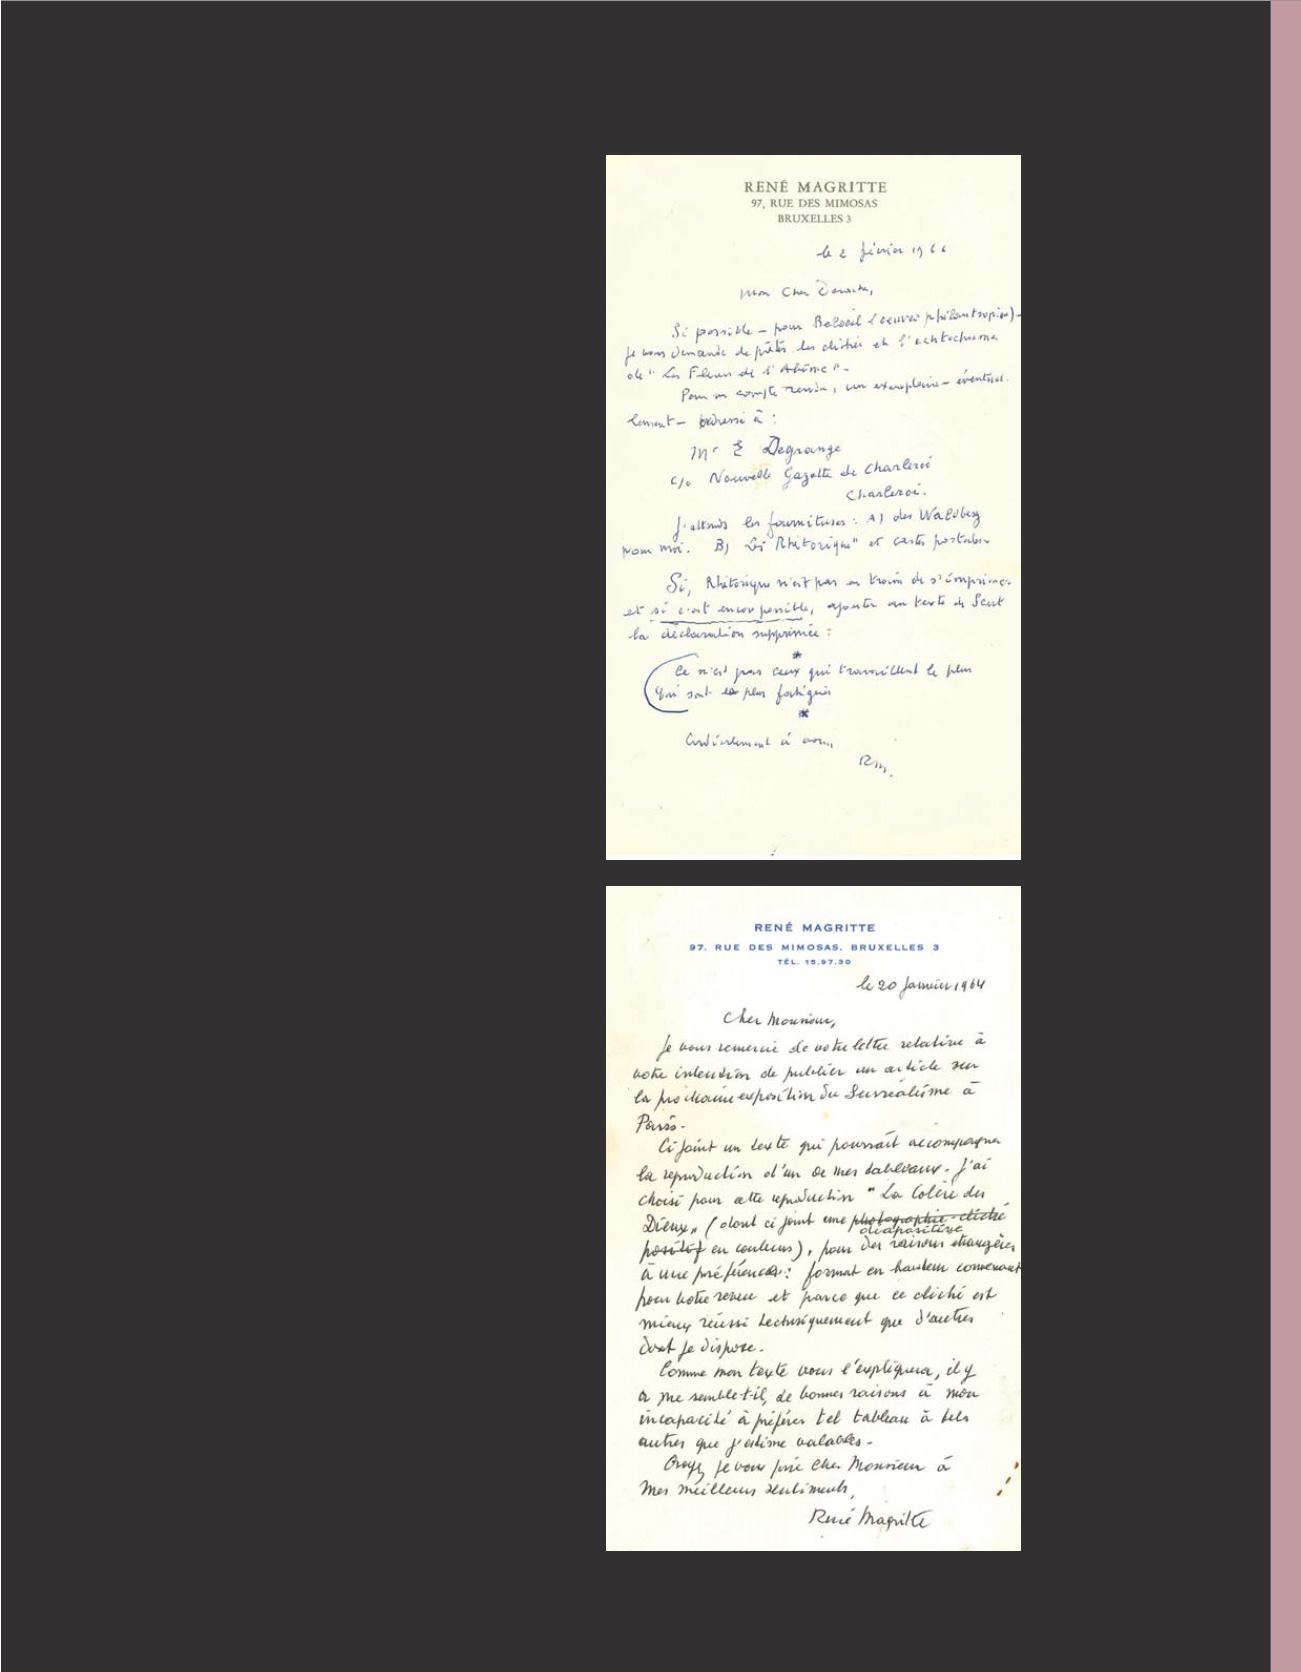 RENÉ MAGRITTE
97, RUE DES MIMOSAS
BRUXELLES 3
le 2 février 1966
Mon Cher
Si possible – pour Beloeil (oeuvre philantropique) –
je vous demande de prêter les clichés et l'ektachrome
de "Les Fleurs de l'Abîme".
Pour un compte rendu, un exemplaire – éventuel-
lement – adressé à :
Mr E Degrange
c/o Nouvelle Gazette de Charleroi
Charleroi.
J'attends les fournitures : A) des Waldberg
pour moi. B) Les "Rhétorique" et cartes postales
Si, Rhétorique n'est pas en train de s'imprimer
et si c'est encor possible, ajouter au texte de Scut
la déclaration supprimée :
*
Ce n'est pas ceux qui travaillent le plus
qui sont les plus fatigués
*
Cordialement à vous,
RM.
RENÉ MAGRITTE
97. RUE DES MIMOSAS. BRUXELLES 3
TÉL. 15.97.30
le 20 Janvier 1964
Cher Monsieur,
Je vous remercie de votre lettre relative à
votre intention de publier un article sur
la prochaine exposition du Surréalisme à
Paris.
Ci joint un texte qui pourrait accompagner
la reproduction d'un de mes tableaux. J'ai
choisi pour cette reproduction "La Colère des
Dieux" (dont ci joint une photographie-cliché
diapositive
positif en couleurs), pour des raisons étrangères
à une préférence : format en hauteur convenant
pour votre revue et parce que ce cliché est
mieux réussi techniquement que d'autres
dont je dispose.
Comme mon texte vous l'expliquera, il y
a me semble-t-il, de bonnes raisons à mon
incapacité à préférer tel tableau à tels
autres que j'estime valables.
Croyez, je vous prie Cher Monsieur à
mes meilleurs sentiments,
René Magritte